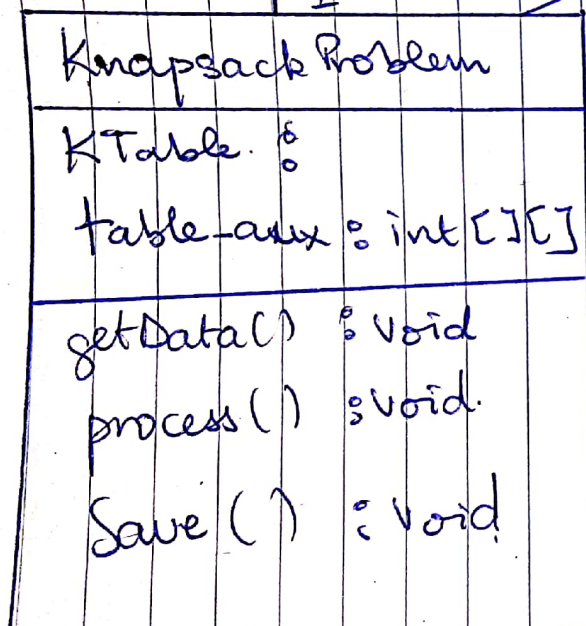 Knapsack Problem
KTable :
table-aux : int [][]
getData() : Void
process() : void.
Save () : Void